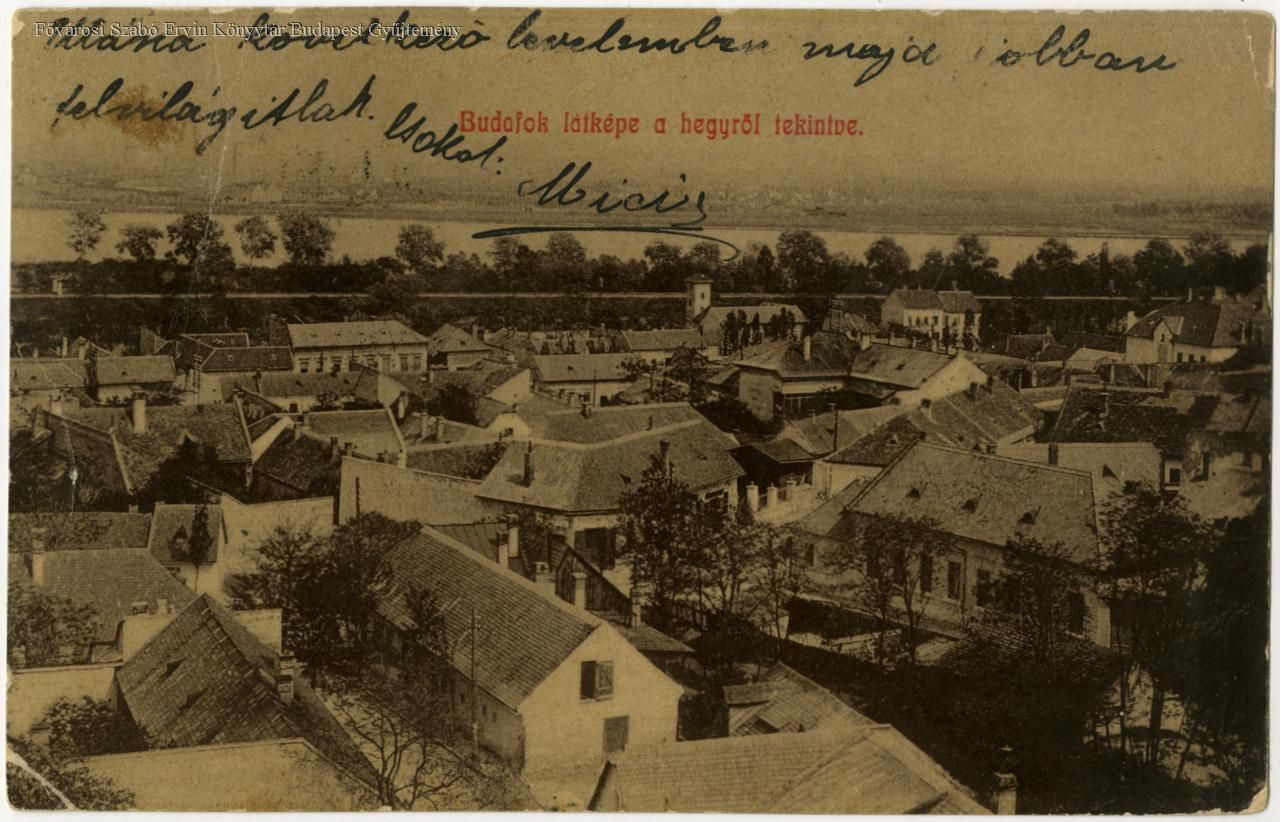 Fővárosi Szabó Ervin Könyvtár Budapest Gyűjtemény
következő levelemben majd jobban
felvilágitlak. Csokol.
Budafok látképe a hegyről tekintve.
Micis